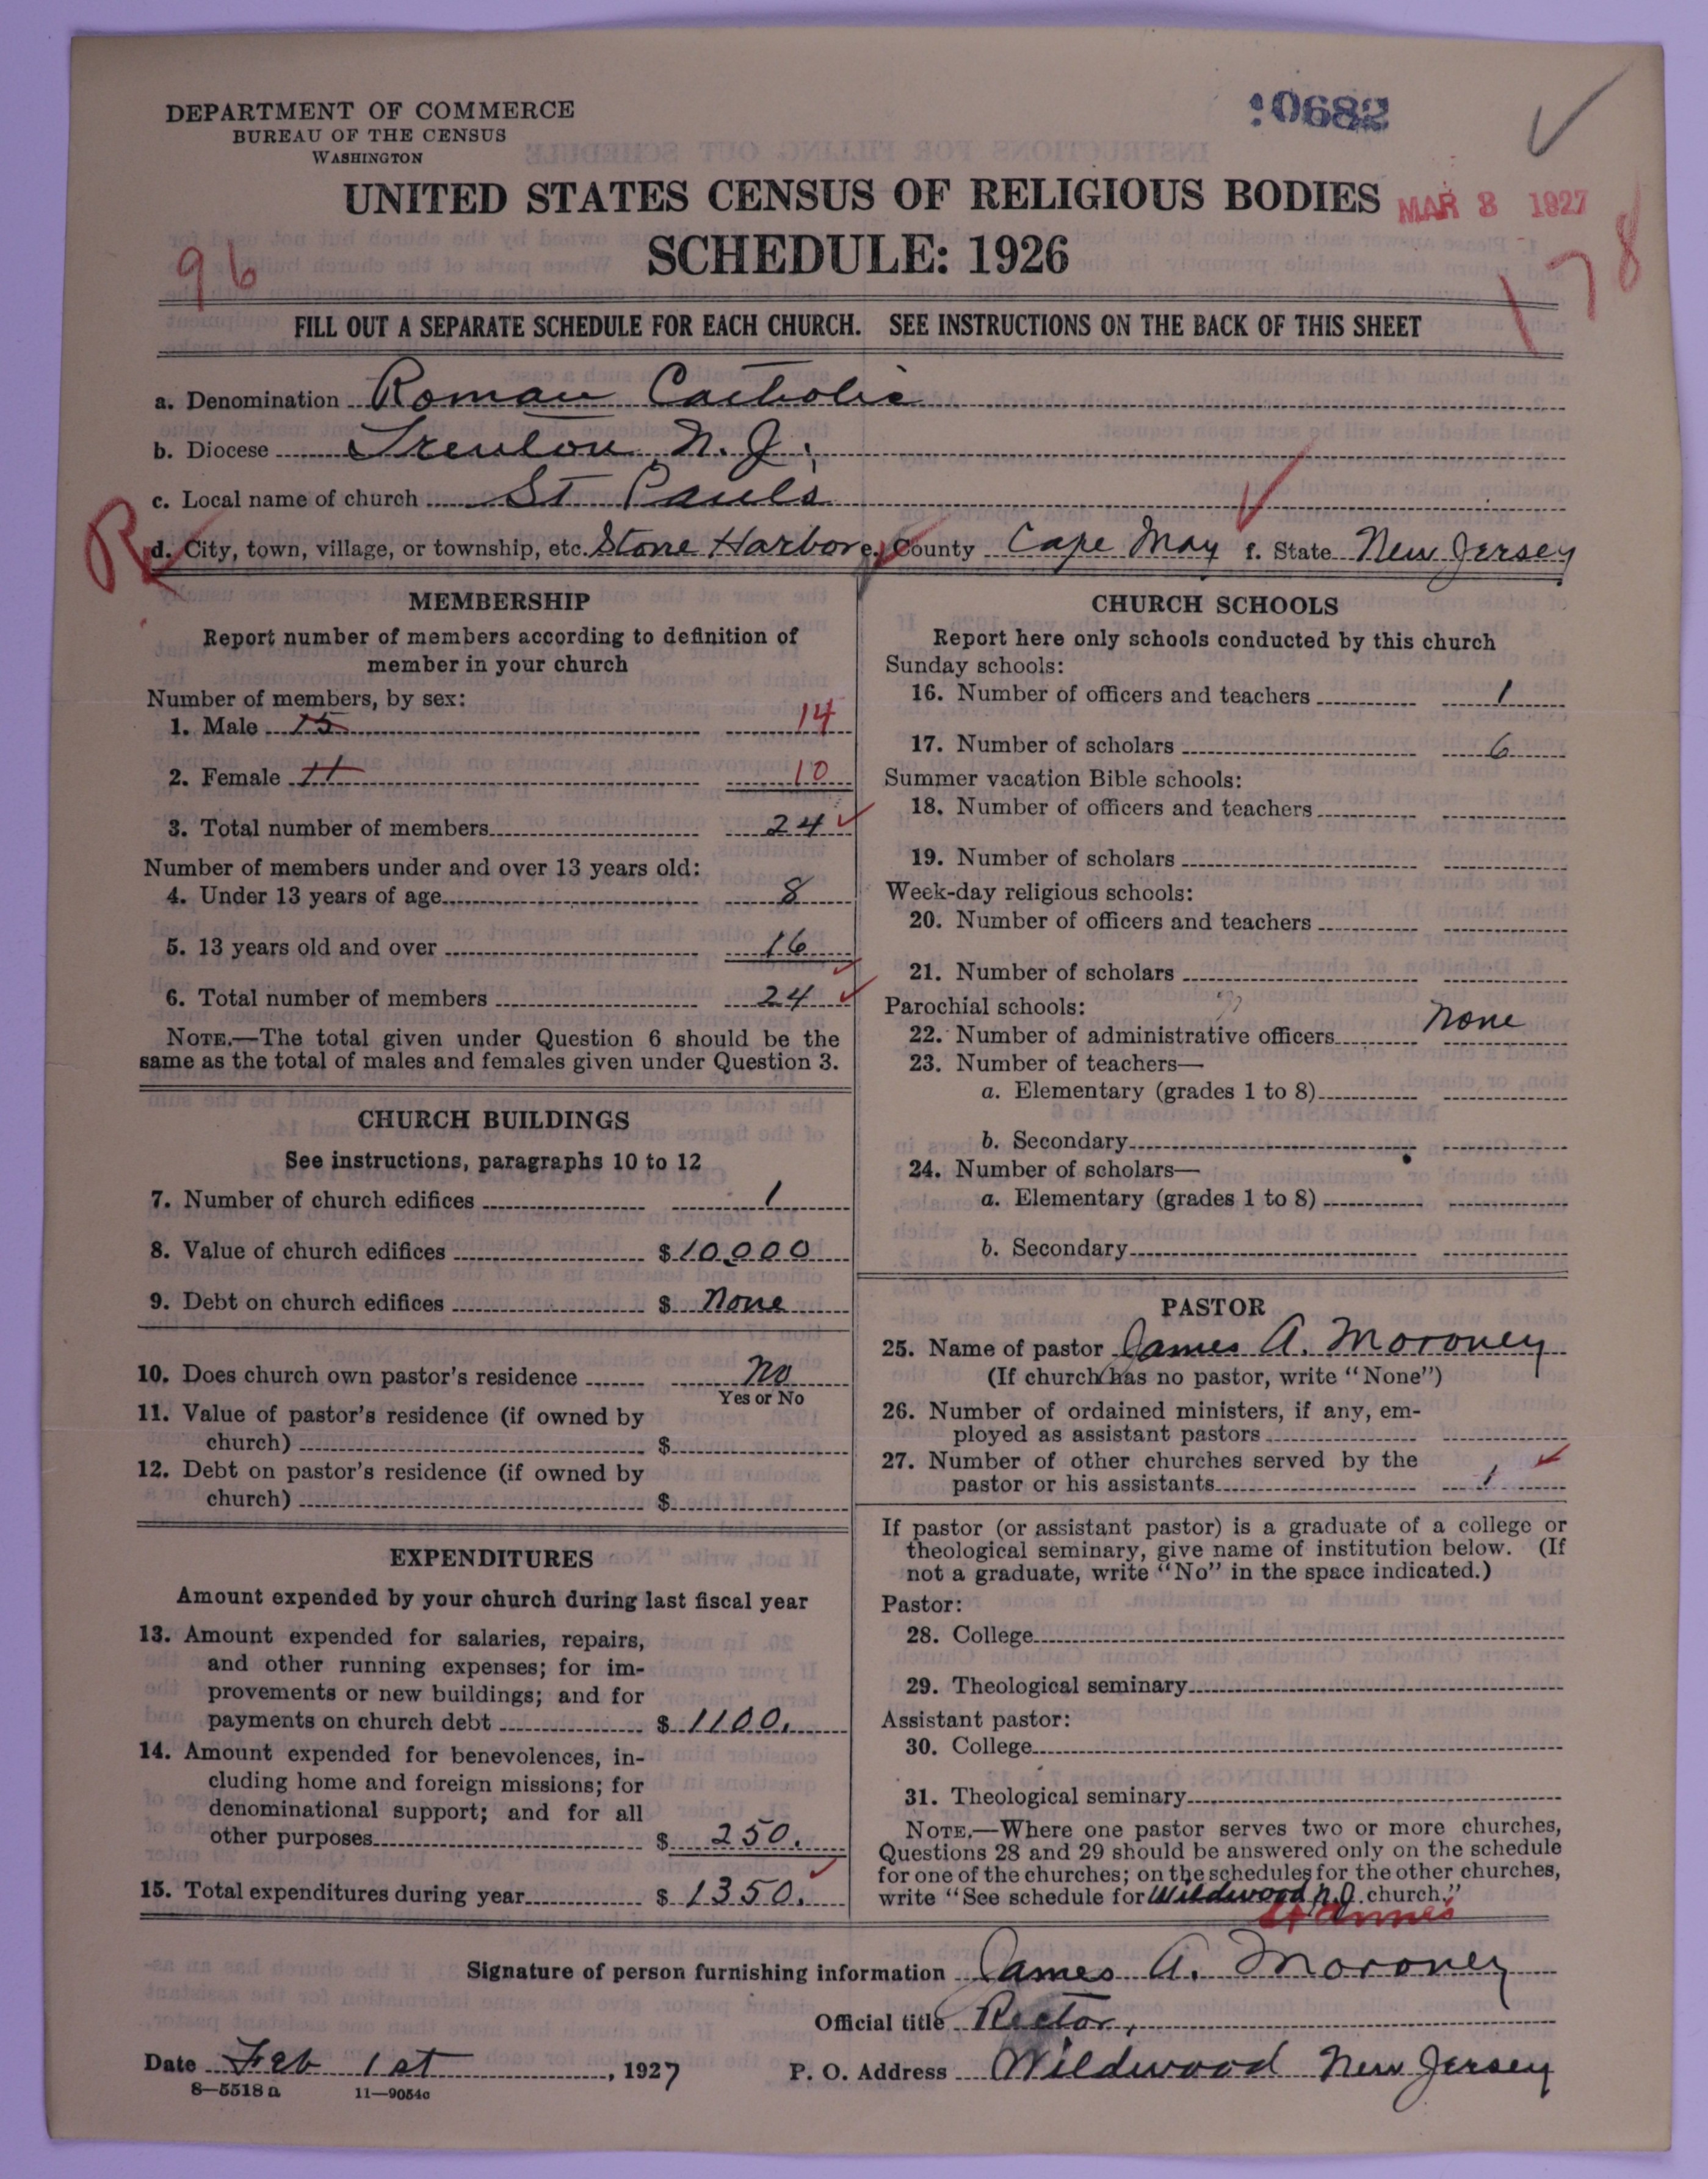 DEPARTMENT OF COMMERCE
BUREAU OF THE CENSUS
WASHINGTON
0682
UNITED STATES CENSUS OF RELIGIOUS BODIES
MAR 8 1927
SCHEDULE: 1926
96
178
FILL OUT A SEPARATE SCHEDULE FOR EACH CHURCH. SEE INSTRUCTIONS ON THE BACK OF THIS SHEET
a. Denomination Roman Catholic
b. Diocese Trenton, N. J.
c. Local name of church St Pauls
R
d. City, town, village, or township, etc. Stone Harbor e. County Cape May f. State New Jersey
MEMBERSHIP
Report number of members according to definition of
member in your church
Number of members, by sex:
1. Male 15 14
2. Female 11 10
3. Total number of members 24
Number of members under and over 13 years old:
4. Under 13 years of age 8
5. 13 years old and over 16
6. Total number of members 24
NOTE.—The total given under Question 6 should be the
same as the total of males and females given under Question 3.
CHURCH BUILDINGS
See instructions, paragraphs 10 to 12
7. Number of church edifices 1
8. Value of church edifices $10,000
9. Debt on church edifices $ None
10. Does church own pastor's residence No
Yes or No
11. Value of pastor's residence (if owned by
church) $
12. Debt on pastor's residence (if owned by
church) $
EXPENDITURES
Amount expended by your church during last fiscal year
13. Amount expended for salaries, repairs,
and other running expenses; for im-
provements or new buildings; and for
payments on church debt $ 1100.
14. Amount expended for benevolences, in-
cluding home and foreign missions; for
denominational support; and for all
other purposes $ 250.
15. Total expenditures during year $ 1350.
CHURCH SCHOOLS
Report here only schools conducted by this church
Sunday schools:
16. Number of officers and teachers 1
17. Number of scholars 6
Summer vacation Bible schools:
18. Number of officers and teachers
19. Number of scholars
Week-day religious schools:
20. Number of officers and teachers
21. Number of scholars
Parochial schools:
22. Number of administrative officers None
23. Number of teachers—
a. Elementary (grades 1 to 8)
b. Secondary
24. Number of scholars—
a. Elementary (grades 1 to 8)
b. Secondary
PASTOR
25. Name of pastor James A. Moroney
(If church has no pastor, write "None")
26. Number of ordained ministers, if any, em-
ployed as assistant pastors
27. Number of other churches served by the
pastor or his assistants 1
If pastor (or assistant pastor) is a graduate of a college or
theological seminary, give name of institution below. (If
not a graduate, write "No" in the space indicated.)
Pastor:
28. College
29. Theological seminary
Assistant pastor:
30. College
31. Theological seminary
NOTE.—Where one pastor serves two or more churches,
Questions 28 and 29 should be answered only on the schedule
for one of the churches; on the schedules for the other churches,
write "See schedule for Wildwood N.J. church."
St Annes
Signature of person furnishing information James A. Moroney
Official title Rector,
Date Feb 1st, 1927 P. O. Address Wildwood New Jersey
8—5518 a 11—9054c